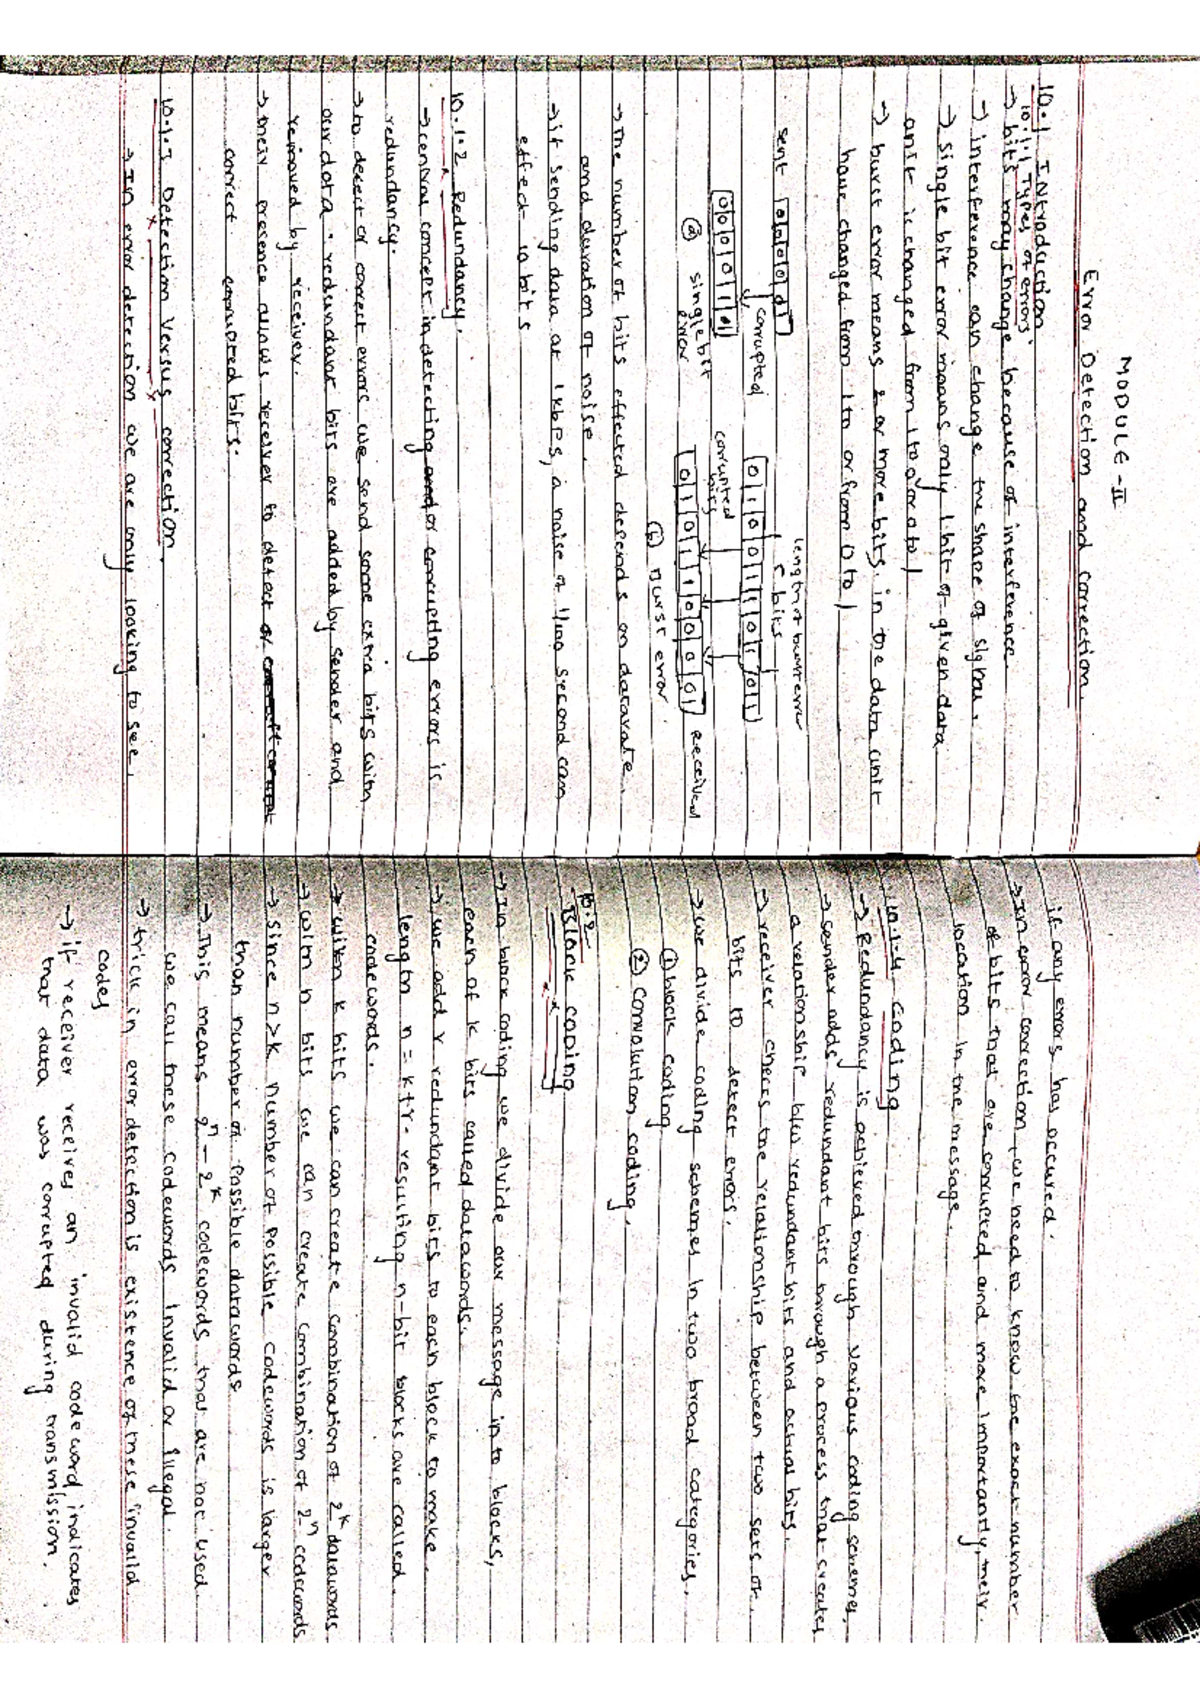 MODULE-II
Error Detection and correction
10.1 Introduction
10.1.1 Types of errors
→ bits may change because of interference.
→ interference can change the shape of signal.
→ single bit error means only 1 bit of given data
unit is changed from 1 to 0 or 0 to 1
→ burst error means 2 or more bits in the data unit
have changed from 1 to 0 or from 0 to 1
length of burst error
8 bits
sent
corrupted
corrupted
bits
Received
(a) single bit
error
(b) Burst error
→ The number of bits effected depends on datarate
and duration of noise.
→ if sending data at 1kbps, a noise of 1/100 second can
effect 10 bits
10.1.2 Redundancy.
→ central concept in detecting or corrupting errors is
redundancy.
→ to detect or correct errors we send some extra bits with
our data. redundant bits are added by sender and
removed by receiver.
→ their presence allows receiver to detect or
correct corrupted bits.
10.1.3 Detection Versus correction.
→ In error detection we are only looking to see
if any errors has occured.
→ In error correction, we need to know the exact number
of bits that are corrupted and more importantly, their
location in the message.
10.1.4 Coding
→ Redundancy is achieved through various coding schemes.
→ sender adds redundant bits through a process that creates
a relationship b/w redundant bits and actual bits.
→ receiver checks the relationship between two sets of
bits to detect errors.
→ we divide coding schemes in two broad categories.
① block coding
② Convolution coding.
10.2
Block coding
→ In block coding we divide our message in to blocks,
each of k bits called datawords.
→ we add r redundant bits to each block to make
length n = k+r. resulting n-bit blocks are called
codewords.
→ with k bits we can create combination of 2^k datawords
→ with n bits we can create combination of 2^n codewords
→ since n>k number of possible codewords is larger
than number of possible datawords
→ This means 2^n - 2^k codewords that are not used.
we call these codewords invalid or illegal.
→ trick in error detection is existence of these invalid
codes
→ if receiver receives an invalid codeword, indicates
that data was corrupted during transmission.